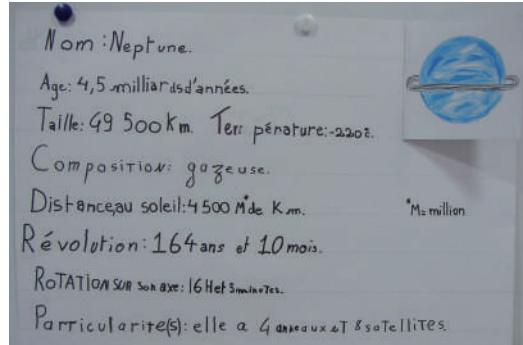 Nom : Neptune.
Age: 4,5 milliards d'années.
Taille: 49 500 Km. Tem pénature: -220°c.
Composition: gazeuse.
Distance au soleil: 4 500 M* de Km.
*M= million
Révolution: 164 ans et 10 mois.
RoTATION SUR son axe: 16 H et 3 minutes.
Particularité(s): elle a 4 anneaux eT 8 saTelliTes.